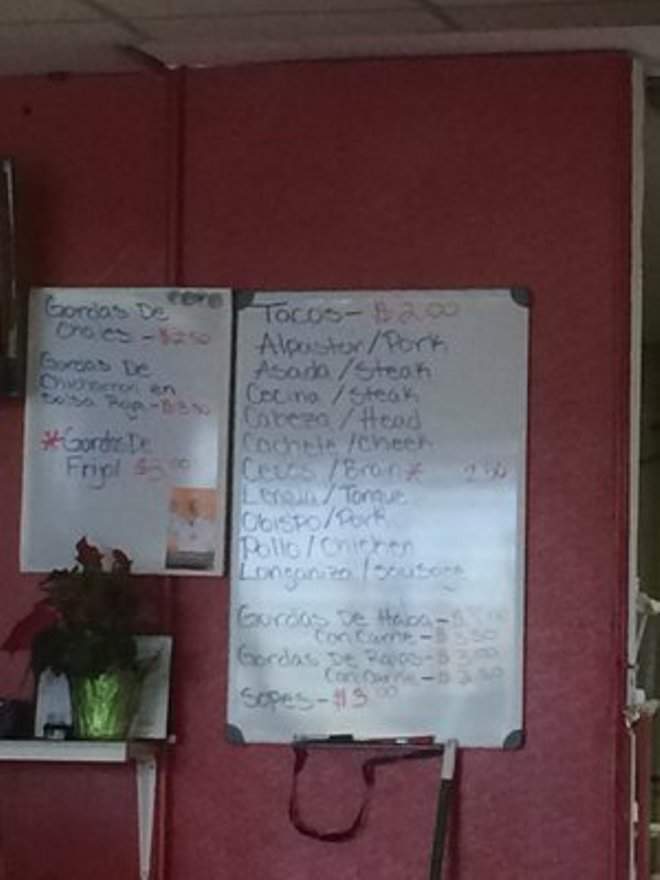 Gordas De
Chiles - $2.50
Gordas De
Chicharron en
Salsa Roja - $3.50
*Gordas De
Frijol $3.00
Tacos - $2.00
Alpastor/Pork
Asada/Steak
Cecina/Steak
Cabeza/Head
Cachete/Cheek
Cesos/Brain* 2.50
Lengua/Tongue
Obispo/Pork
Pollo/Chicken
Longaniza/sausage
Gordas De Haba - $3.00
Con Carne - $3.50
Gordas De Rajas - $3.00
Con Carne - $3.50
Sopes - $3.00